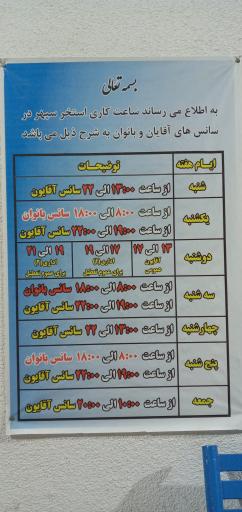 بسمه تعالی
به اطلاع می رساند ساعت کاری استخر سپهر در
سانس های آقایان و بانوان به شرح ذیل می باشد.
ایام هفته توضیحات
شنبه از ساعت ۱۳:۰۰ الی ۲۲ سانس آقایون
یکشنبه از ساعت ۸:۰۰ الی ۱۸:۰۰ سانس بانوان
از ساعت ۱۹:۰۰ الی ۲۲:۰۰ سانس آقایون
دوشنبه ۱۳ الی ۱۷ ۱۷ الی ۱۹ ۱۹ الی ۲۱
آقایون
عمومی
برای عموم تعطیل برای عموم تعطیل
سه شنبه از ساعت ۸:۰۰ الی ۱۸:۰۰ سانس بانوان
از ساعت ۱۹:۰۰ الی ۲۲:۰۰ سانس آقایون
چهارشنبه از ساعت ۱۳:۰۰ الی ۲۲ سانس آقایون
پنج شنبه از ساعت ۸:۰۰ الی ۱۸:۰۰ سانس بانوان
از ساعت ۱۹:۰۰ الی ۲۲:۰۰ سانس آقایون
جمعه از ساعت ۱۰:۰۰ الی ۲۰:۰۰ سانس آقایون